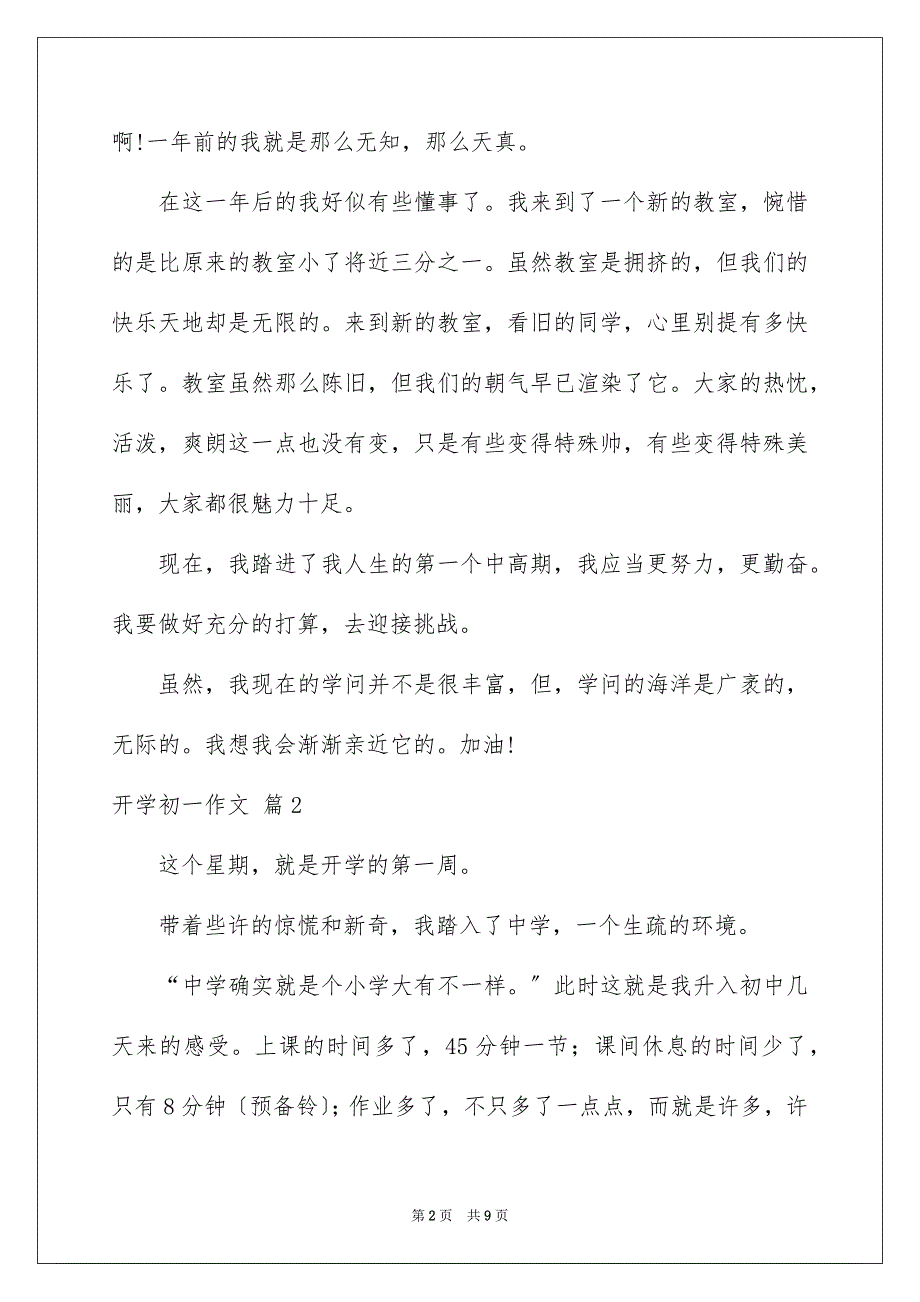 啊!一年前的我就是那么无知，那么天真。
在这一年后的我好似有些懂事了。我来到了一个新的教室，惋惜
的是比原来的教室小了将近三分之一。虽然教室是拥挤的，但我们的
快乐天地却是无限的。来到新的教室，看旧的同学，心里别提有多快
乐了。教室虽然那么陈旧，但我们的朝气早已渲染了它。大家的热忱，
活泼，爽朗这一点也没有变，只是有些变得特殊帅，有些变得特殊美
丽，大家都很魅力十足。
现在，我踏进了我人生的第一个中高期，我应当更努力，更勤奋。
我要做好充分的打算，去迎接挑战。
虽然，我现在的学问并不是很丰富，但，学问的海洋是广袤的，
无际的。我想我会渐渐亲近它的。加油!
开学初一作文 篇2
这个星期，就是开学的第一周。
带着些许的惊慌和新奇，我踏入了中学，一个生疏的环境。
“中学确实就是个小学大有不一样。〞此时这就是我升入初中几
天来的感受。上课的时间多了，45分钟一节；课间休息的时间少了，
只有8分钟〔预备铃〕；作业多了，不只多了一点点，而就是许多，许
第2页 共9页